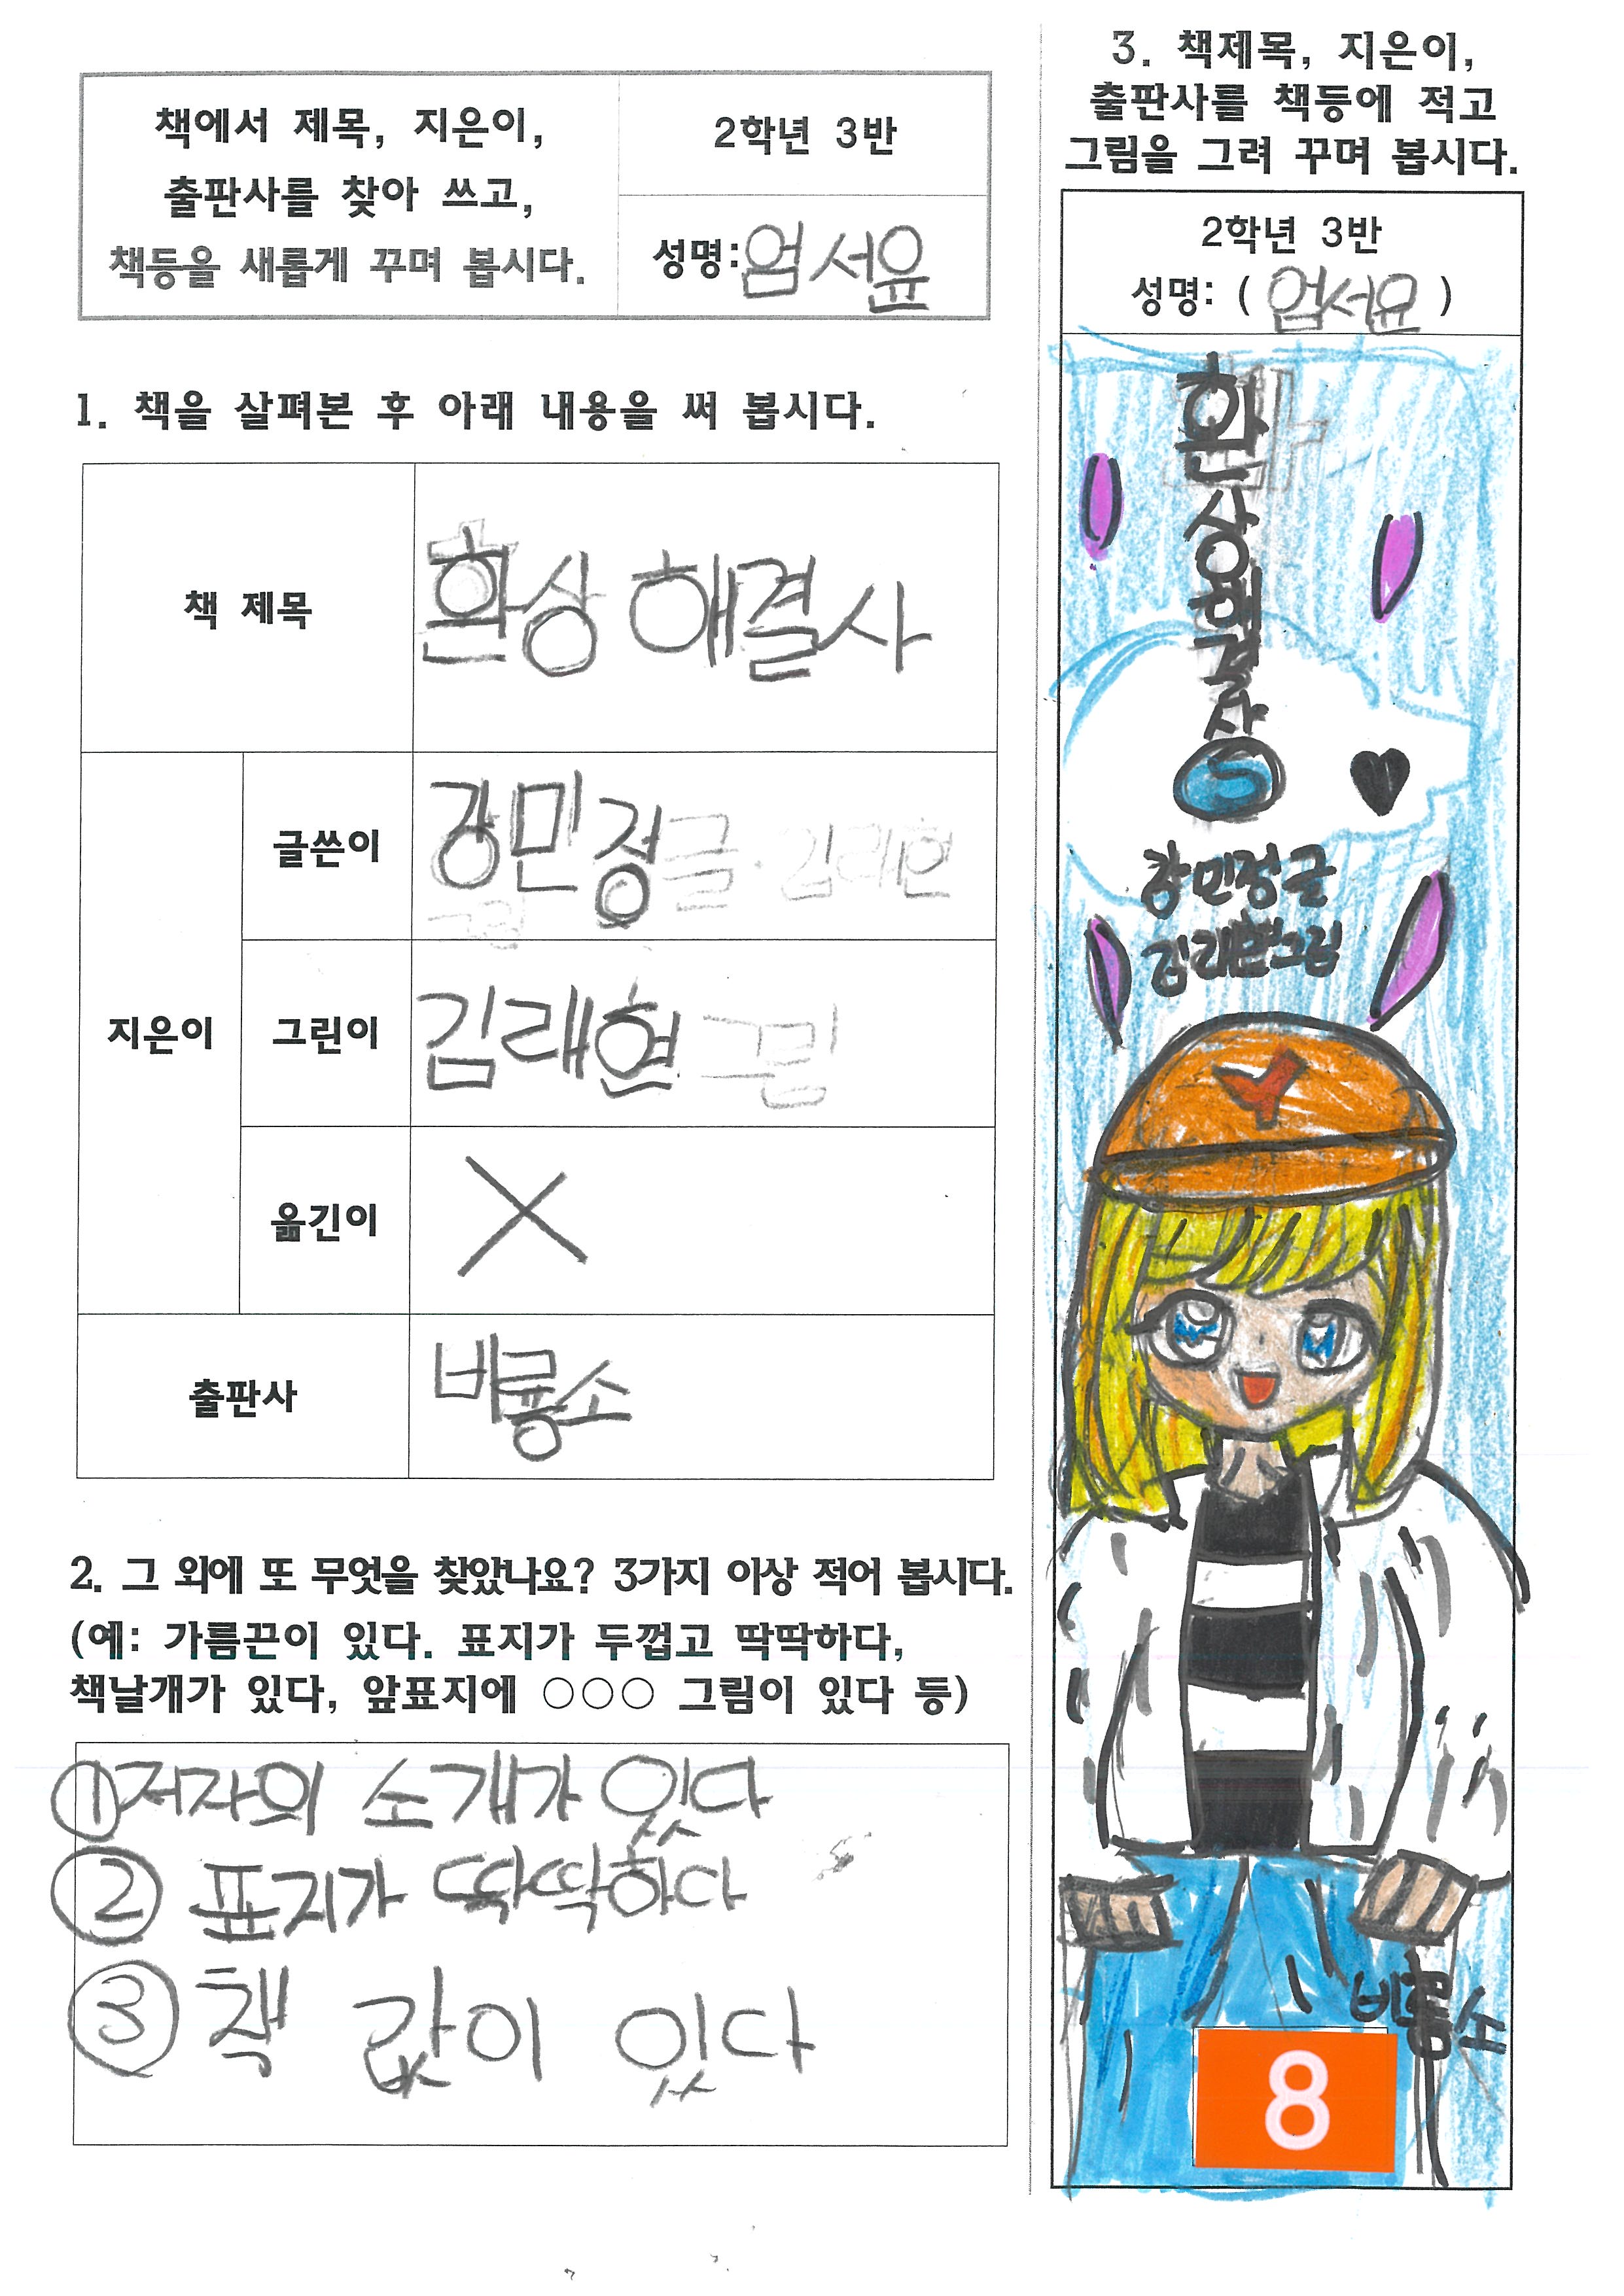 책에서 제목, 지은이,
출판사를 찾아 쓰고,
책등을 새롭게 꾸며 봅시다.
2학년 3반
성명: 엄서윤
1. 책을 살펴본 후 아래 내용을 써 봅시다.
책 제목
환상 해결사
지은이
글쓴이
강민정글 · 김래현
그림
그린이
김래현 그림
옮긴이
X
출판사
비룡소
2. 그 외에 또 무엇을 찾았나요? 3가지 이상 적어 봅시다.
(예: 가름끈이 있다. 표지가 두껍고 딱딱하다,
책날개가 있다, 앞표지에 ○○○ 그림이 있다 등)
① 저자의 소개가 있다
② 표지가 딱딱하다
③ 책 값이 있다
3. 책제목, 지은이,
출판사를 책등에 적고
그림을 그려 꾸며 봅시다.
2학년 3반
성명: ( 엄서윤 )
환상해결사
강민정글
김래현그림
비룡소
8